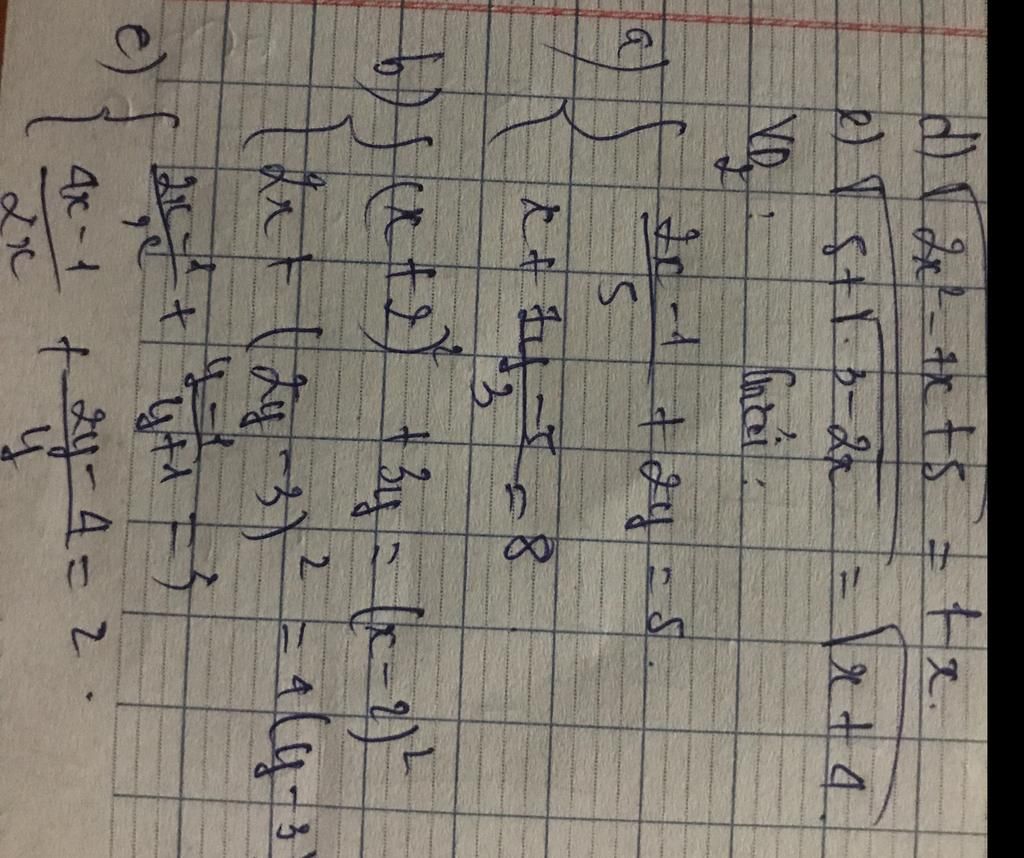 d) √2x² - 7x + 5 = 7x.
e) √5 + √3 - 2x = √x + 4
VD2:
a) { 2x - 1 / 5 + 2y = 5.
x + 7y - 5 / 3 = 8
b) { (x + 2)² + 3y = (x - 2)²
2x + (2y - 3)² = 4(y - 3)
c) { 2x - 1 / x + y - 1 / y + 1 = 3
4x - 1 / 2x + 2y - 4 / y = 2.